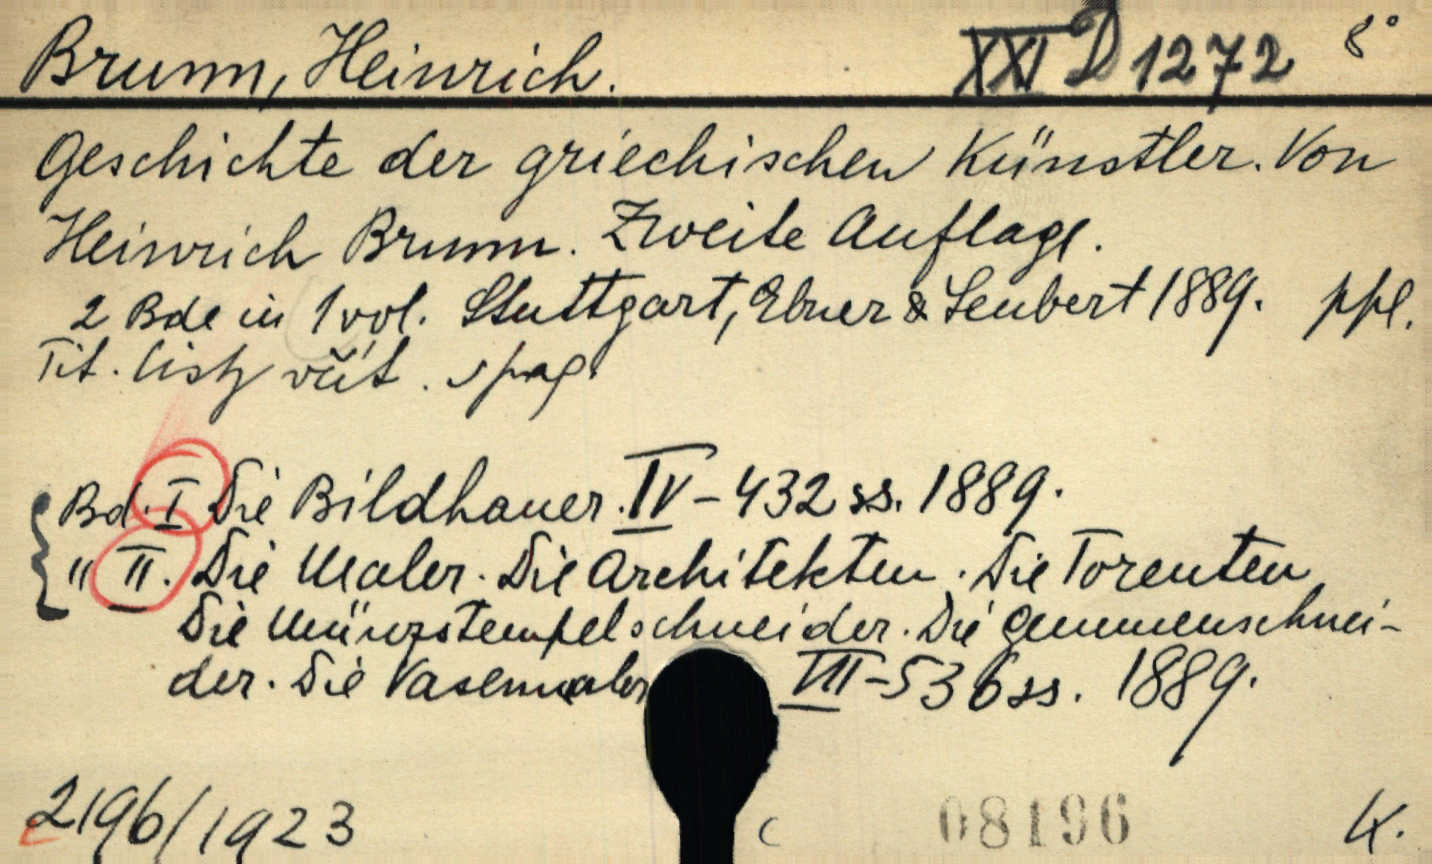 Brunn, Heinrich. XXI D 1272 8°
Geschichte der griechischen Künstler. Von
Heinrich Brunn. Zweite Auflage.
2 Bde in 1 vol. Stuttgart, Ebner & Seubert 1889. ppl.
Tit. listy
Bd. I Die Bildhauer. IV-432 ss. 1889.
" II. Die Maler. Die Architekten. Die Toreuten
Die Münzstempelschneider. Die Gemmenschnei-
der. Die Vasenmaler VIII-536 ss. 1889.
2196/1923 c 08196